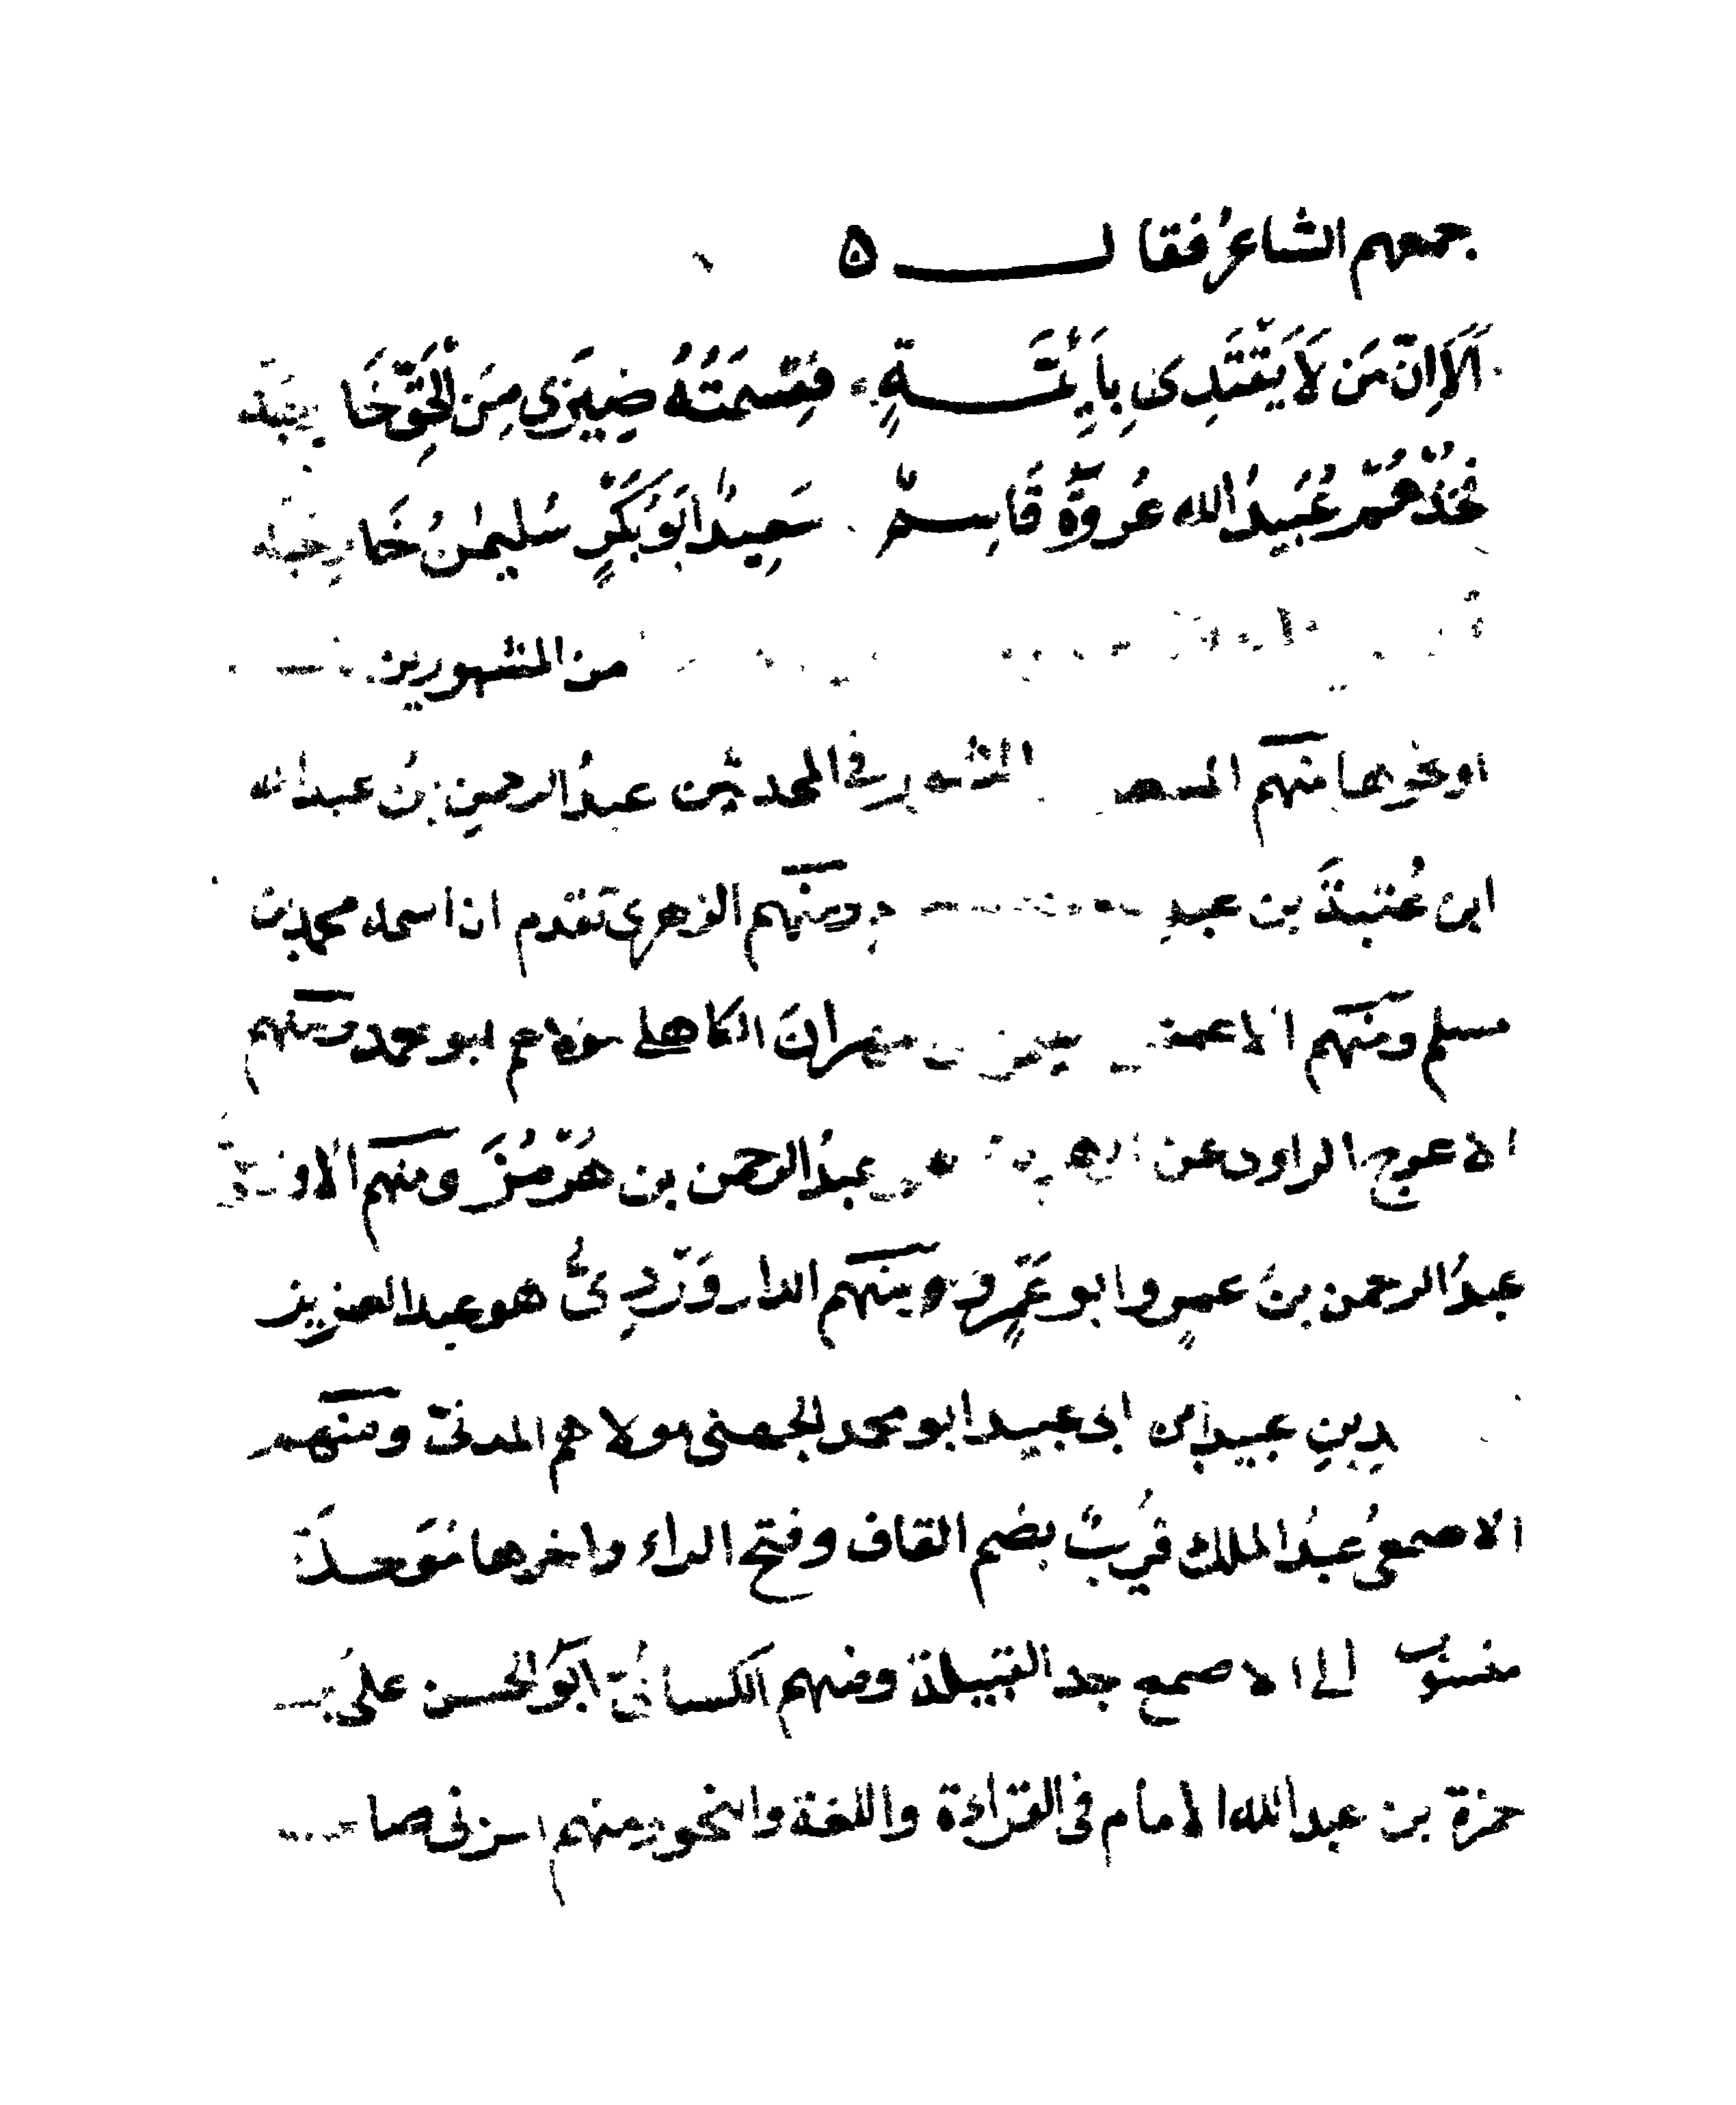 جمعهم الشاعرُ فقال ه
اَلَا اِنّ مَن لَا يَقْتَدِى بِاَئِمَّةٍ فَقِسْمَتُهُ ضِيزَى مِنَ الْحَقِّ خَارِجَة
فخُذْهُمْ عُبَيدُ الله عُروَةُ قَاسِمٌ سَعِيدٌ ابَوُ بَكْرٍ سُليمٰنُ خَارِجَة
من المشهورين
او نحوها منهم المشهور فى المحدثين عبدُ الرحمن بن عبد الله
ابن عُتبةَ بن عبدِ ومنهم الزهرى تقدم ان اسمه محمد بن
مسلم ومنهم الاعمش مهرانَ الكاهلى مولاهم ابو محمد ومنهم
الاعرج الراوى عن عبدُ الرحمن بن هُرْمُزَ ومنهم الاوزاعىّ
عبدُ الرحمن بنَ عمرٍو ابو عَمْرٍو ومنهم الدارَوَرْدِىُّ هو عبد العزيز
بن عبيد ابو محمد الجهنى مولاهم المدنىّ ومنهم
الاصمعىُّ عبدُ الملك قُريبٌ بضم القاف وفتح الراء واخرها مُوَحدَة
منسوب الى الاصمع جد القبيلة ومنهم الكسائىُّ ابَوُ الحسن علىُّ بن
حمزة بن عبد الله الامام فى القراءة واللغة والنحو ومنهم